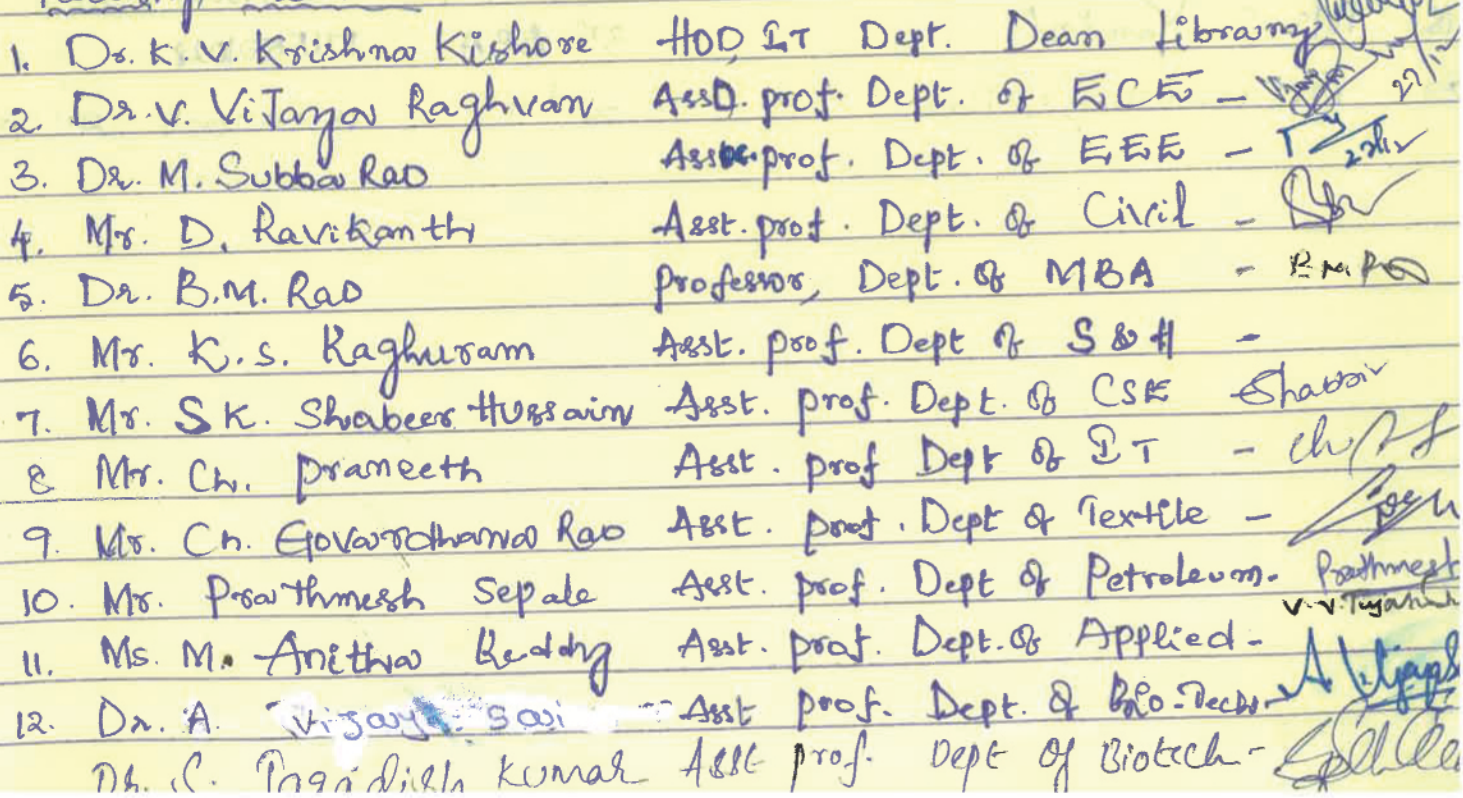 1. Dr. K. V. Krishna Kishore HOD IT Dept. Dean Library
2. Dr. V. ViJaya Raghvan Asso. prof. Dept. of ECE - 27/12
3. Dr. M. Subba Rao prof. Dept. of EEE -
4. Mr. D. Ravikanth Asst. prof. Dept. of Civil -
5. Dr. B.M. Rao professor, Dept. of MBA -
6. Mr. K.S. Raghuram Asst. prof. Dept of S & H -
7. Mr. SK. Shabeer Hussain Asst. prof. Dept. of CSE
8 Mr. Ch. praneeth Asst. prof Dept of IT -
9. Mr. Ch. Govardhana Rao Asst. prof. Dept of Textile -
10. Mr. Prathmesh Sepale Asst. prof. Dept of Petroleum. Prathmesh
11. Ms. M. Anitha Reddy Asst. prof. Dept. of Applied -
12. Dr. A. Vijaya Sai Asst prof. Dept. of Bio-Tech -
Dr. S. Jagadish Kumar Asst prof. Dept of Biotech -